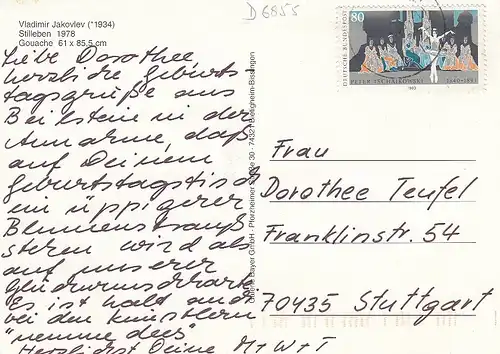 D6855
Vladimir Jakovlev (*1934)
Stilleben 1978
Gouache 61 x 85,5 cm
Liebe Dorothee,
herzliche Geburts
tagsgrüße aus
Beilstein in der
Annahme, daß
auf Deinem
Geburtstagstisch
ein üppigerer
Blumenstrauß
stehen wird als
auf unserer
Glückwunschkarte
Es ist halt auch
bei den Künstlern
"nemme dees"
Herzlichst Deine M+W+T
Bayer GmbH - Pforzheimer Straße 30 - 74321 Bietigheim-Bissingen
DEUTSCHE BUNDESPOST
80
PETER TSCHAIKOWSKY 1840-1893
1993
Frau
Dorothee Teufel
Franklinstr. 54
70435 Stuttgart